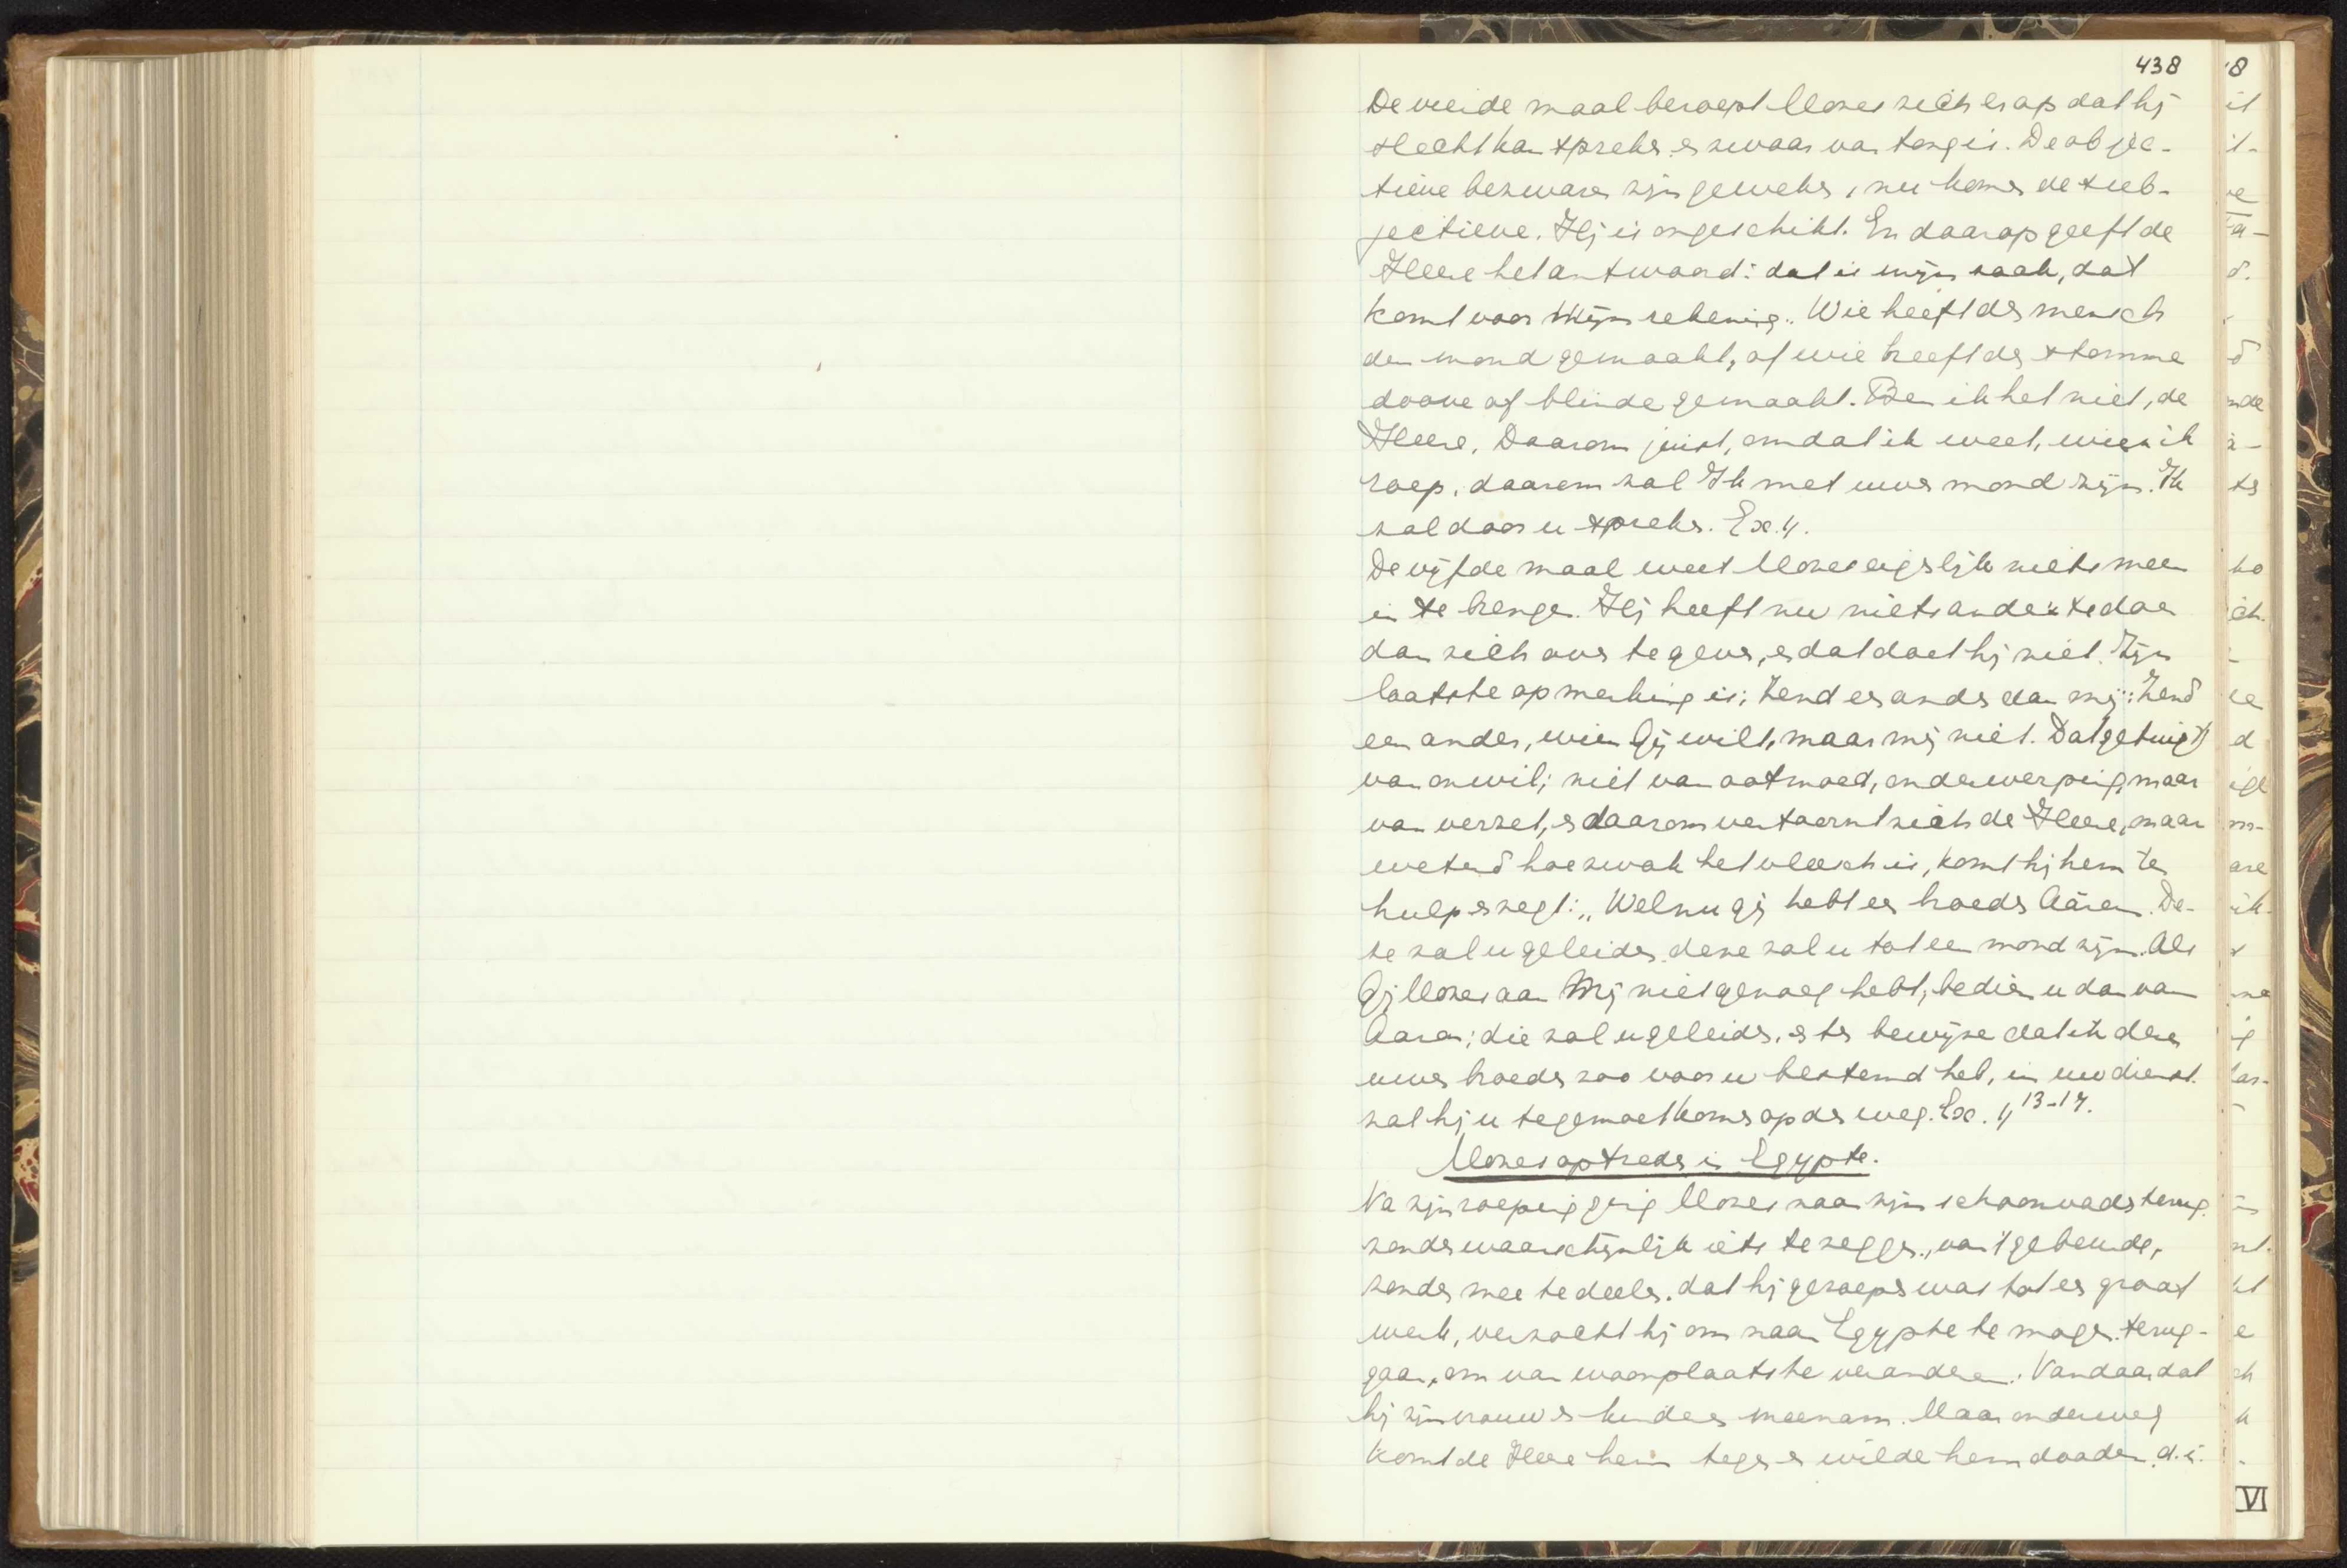 438
De vierde maal beroept Mozes zich er op dat hij
slecht kan spreken en zwaar van tong is. De objec-
tieve bezwaren zijn geweken, nu komen de sub-
jectieve. Hij is ongeschikt. En daarop geeft de
Heere het antwoord: dat is mijn zaak, dat
komt voor Mijn rekening. Wie heeft den mensch
den mond gemaakt, of wie heeft den stomme
doove of blinde gemaakt. Ben ik het niet, de
Heere. Daarom juist, omdat ik weet, wien ik
roep, daarom zal Ik met uwen mond zijn. Ik
zal door u spreken. Ex. 4.
De vijfde maal weet Mozes eigenlijk niets meer
in te brengen. Hij heeft nu niets anders te doen
dan zich over te geven, en dat doet hij niet. Zijn
laatste opmerking is: Zend een ander dan mij: Zend
een ander, wien Gij wilt, maar mij niet. Dat getuigt
van onwil; niet van ootmoed, onderwerping, maar
van verzet, en daarom vertoornt zich de Heere, maar
wetend hoe zwak het vleesch is, komt hij hem te
hulp en zegt: „Welnu gij hebt een broeder Aäron. De-
ze zal u geleiden, deze zal u tot een mond zijn. Als
Gij Mozes aan Mij niet genoeg hebt, bedien u dan van
Aaron; die zal u geleiden, en ten bewijze dat ik dezen
uwen broeder zoo voor u bestemd heb, in uw dienst.
zal hij u tegemoet komen op den weg. Ex. 4 13-17.
Mozes optreden in Egypte.
Na zijn roeping ging Mozes naar zijn schoonvader terug.
zonder waarschijnlijk iets te zeggen, van 't gebeurde,
zonder mee te deelen. dat hij geroepen was tot een groot
werk, verzocht hij om naar Egypte te mogen terug-
gaan, om van woonplaats te veranderen. Vandaar dat
hij zijn vrouw en kinderen meenam. Maar onderweg
komt de Heere hem tegen en wilde hem dooden, d.i.
VI